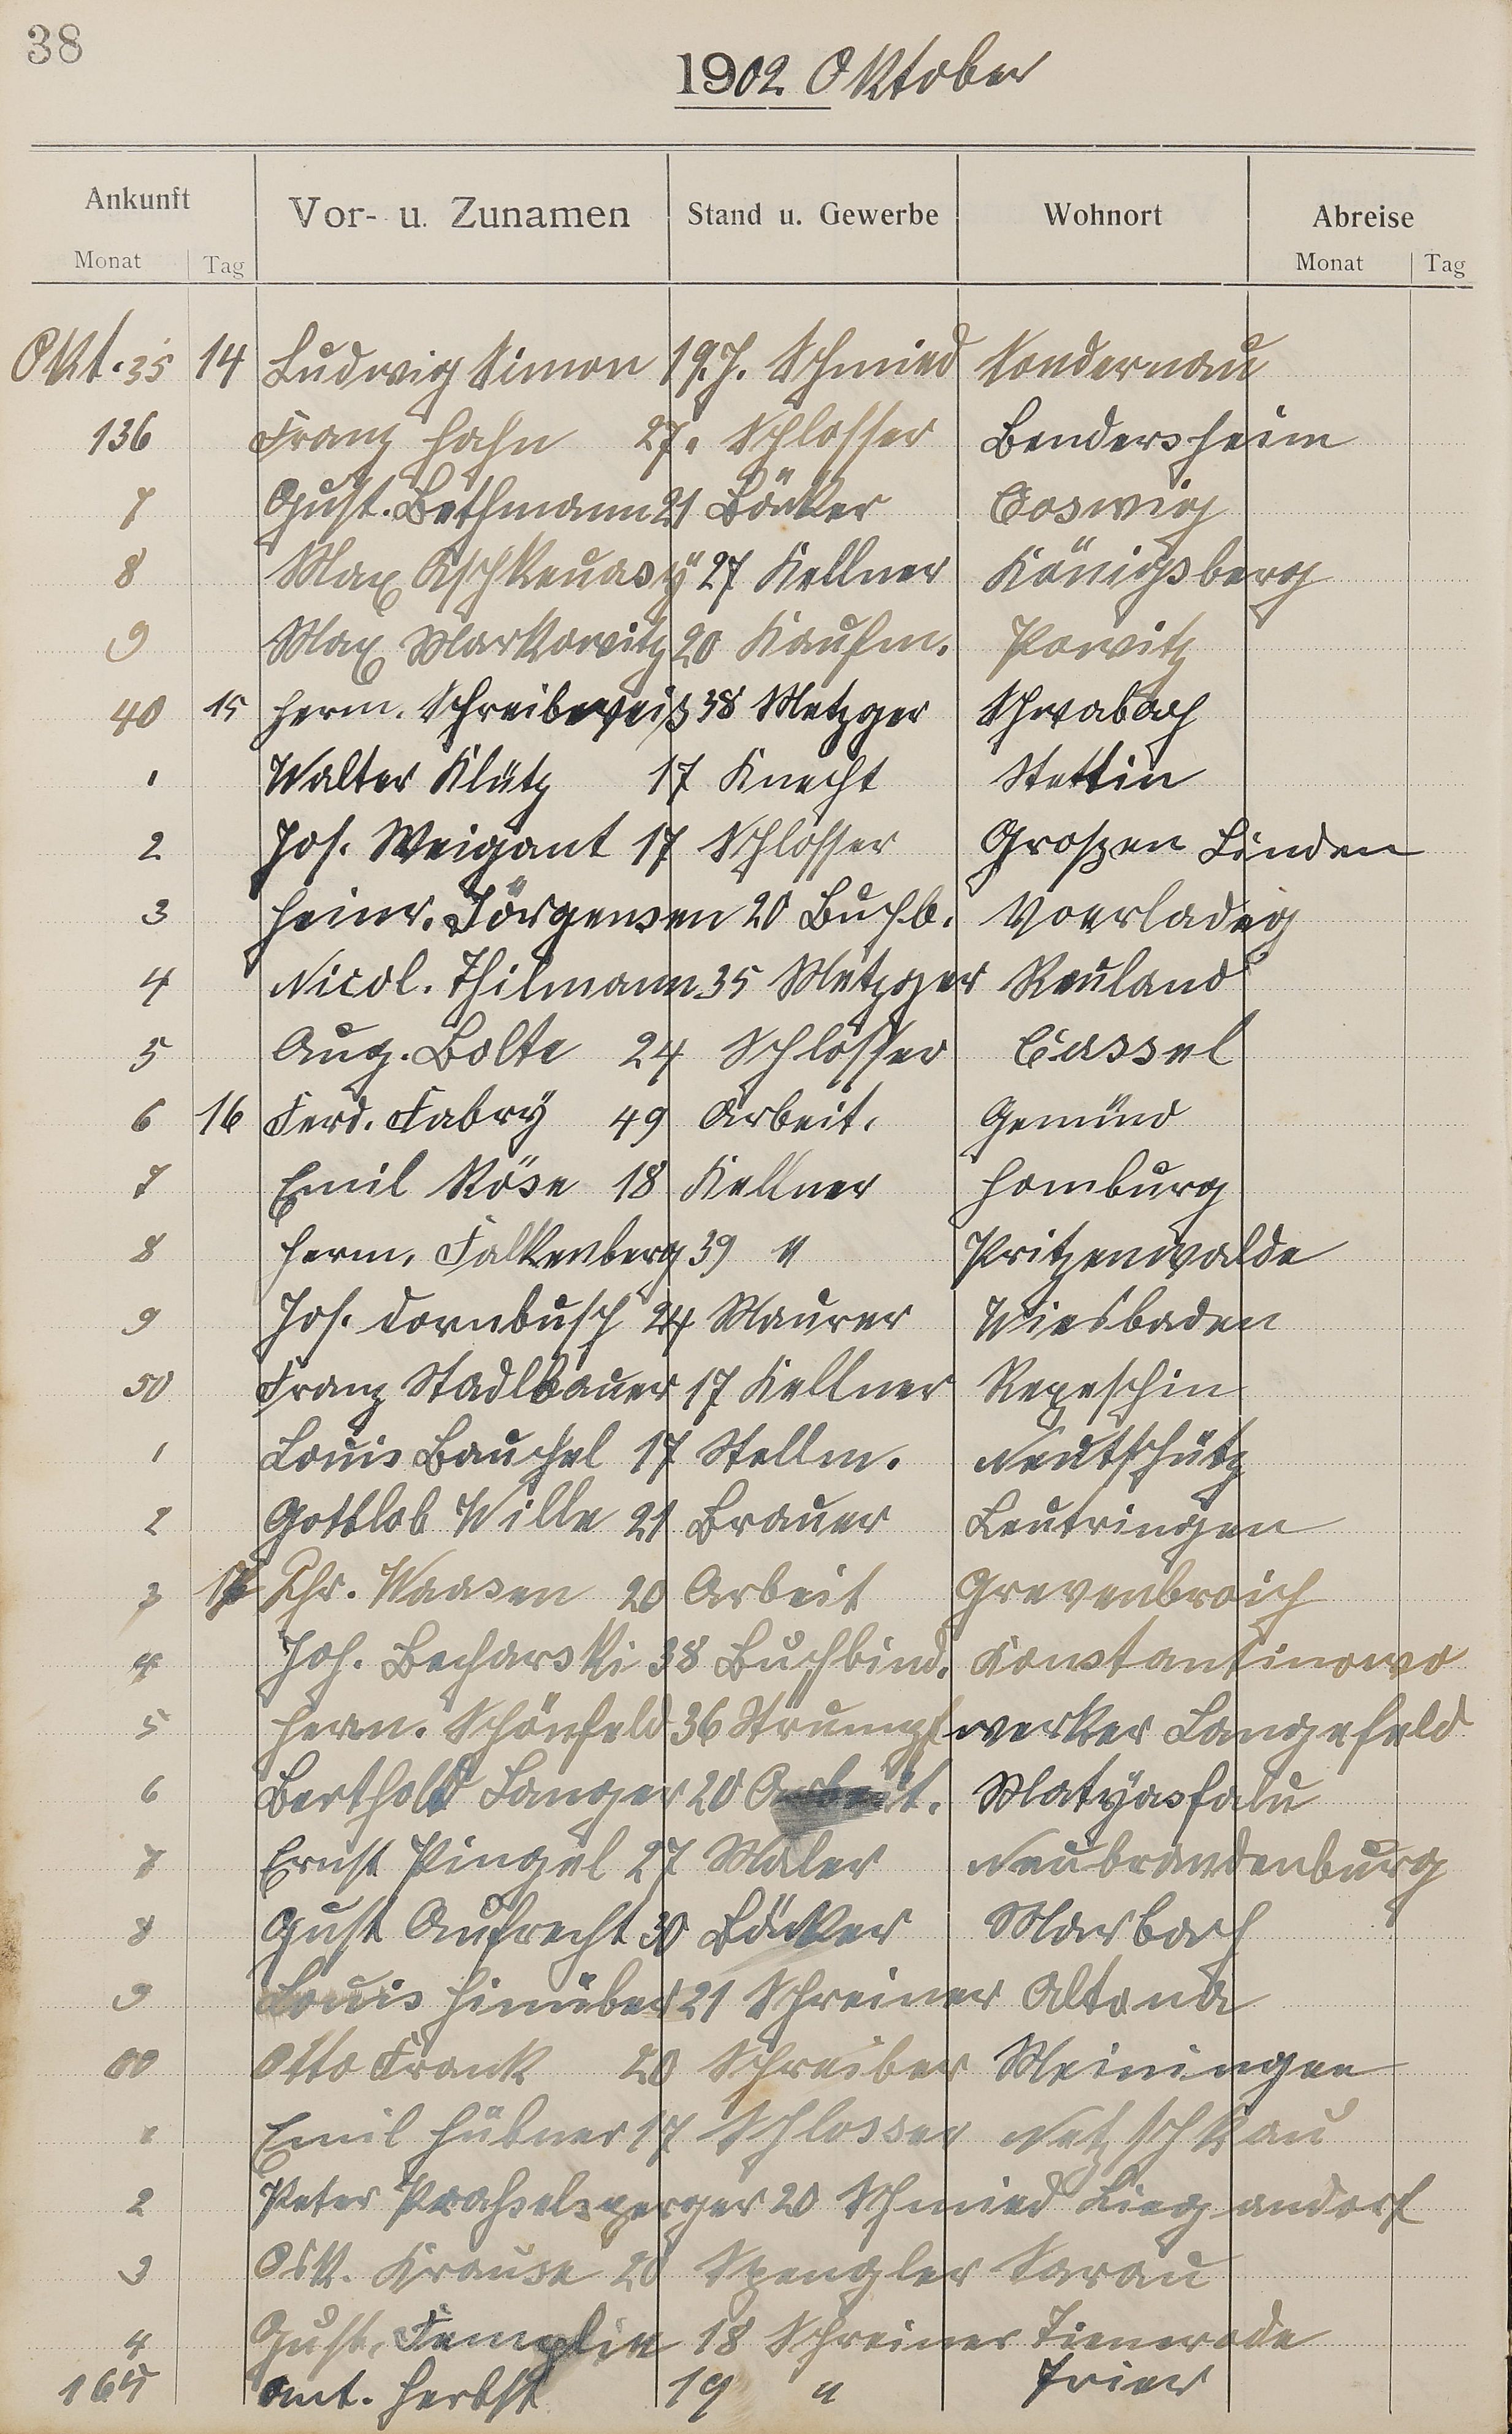 38
1902. Oktober
Ankunft Vor- u. Zunamen Stand u. Gewerbe Wohnort Abreise
Monat Tag Monat Tag
Okt. 35 14 Ludwig Simon 19 J. Schmied Sondernau
136 Franz Hahn 27. Schlosser Bendersheim
7 Gust. Bethmann 21 Bäcker Coswig
8 Max Aschkenasy 27 Kellner Königsberg
9 Max Markowitz 20 Kaufm. Powitz
40 15 Herm. Schreibeweiß 38 Metzger Schwabach
1 Walter Klütz 17 Knecht Stettin
2 Jos. Weigant 17 Schlosser Groszen Linden
3 Heinr. Jörgensen 20 Buchb. Voerladeg
4 Nicol. Thilmann 35 Metzger Reuland
5 Aug. Bolte 24 Schlosser Cassel
6 16 Ferd. Fabry 49 Arbeit. Gemünd
7 Emil Röse 18 Kellner Homburg
8 Herm. Falkenberg 39 " Pritzenwalde
9 Jos. Dornbusch 24 Maurer Wiesbaden
50 Franz Stadlbauer 17 Kellner Repeschin
1 Louis Bauchel 17 Stellm. Neutschütz
2 Gottlob Wille 21 Brauer Leutringen
3 17 Chr. Waasen 20 Arbeit Grevenbroich
4 Joh. Becharski 38 Buchbind. Konstantinowo
5 Herm. Schönfeld 36 Strumpfwerker Langefeld
6 Berthold Langer 20 Arbeit. Matyasfalu
7 Ernst Pingel 27 Maler Neubrandenburg
8 Gust Aufrecht 30 Bäcker Marbach
9 Louis Hinüber 21 Schreiner Altona
60 Otto Frank 20 Schreiber Meiningen
1 Emil Hübner 17 Schlosser Netzschkau
2 Peter 20 Schmied Liegandorf
3 Osk. Krause 20 Spengler Sarau
4 Gust. Templin 18 Schreiner Tienrode
165 Ant. Herbst 19 " Trier